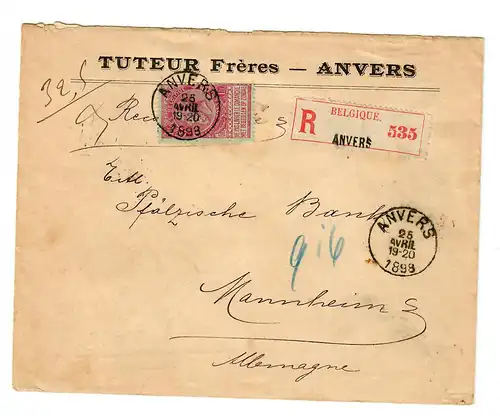 TUTEUR Frères — ANVERS
32,5
ANVERS
25
AVRIL
19-20
1898
R
BELGIQUE.
ANVERS
535
Titl.
Pfälzische Bank
ANVERS
25
AVRIL
19-20
1898
916
Mannheim
Allemagne